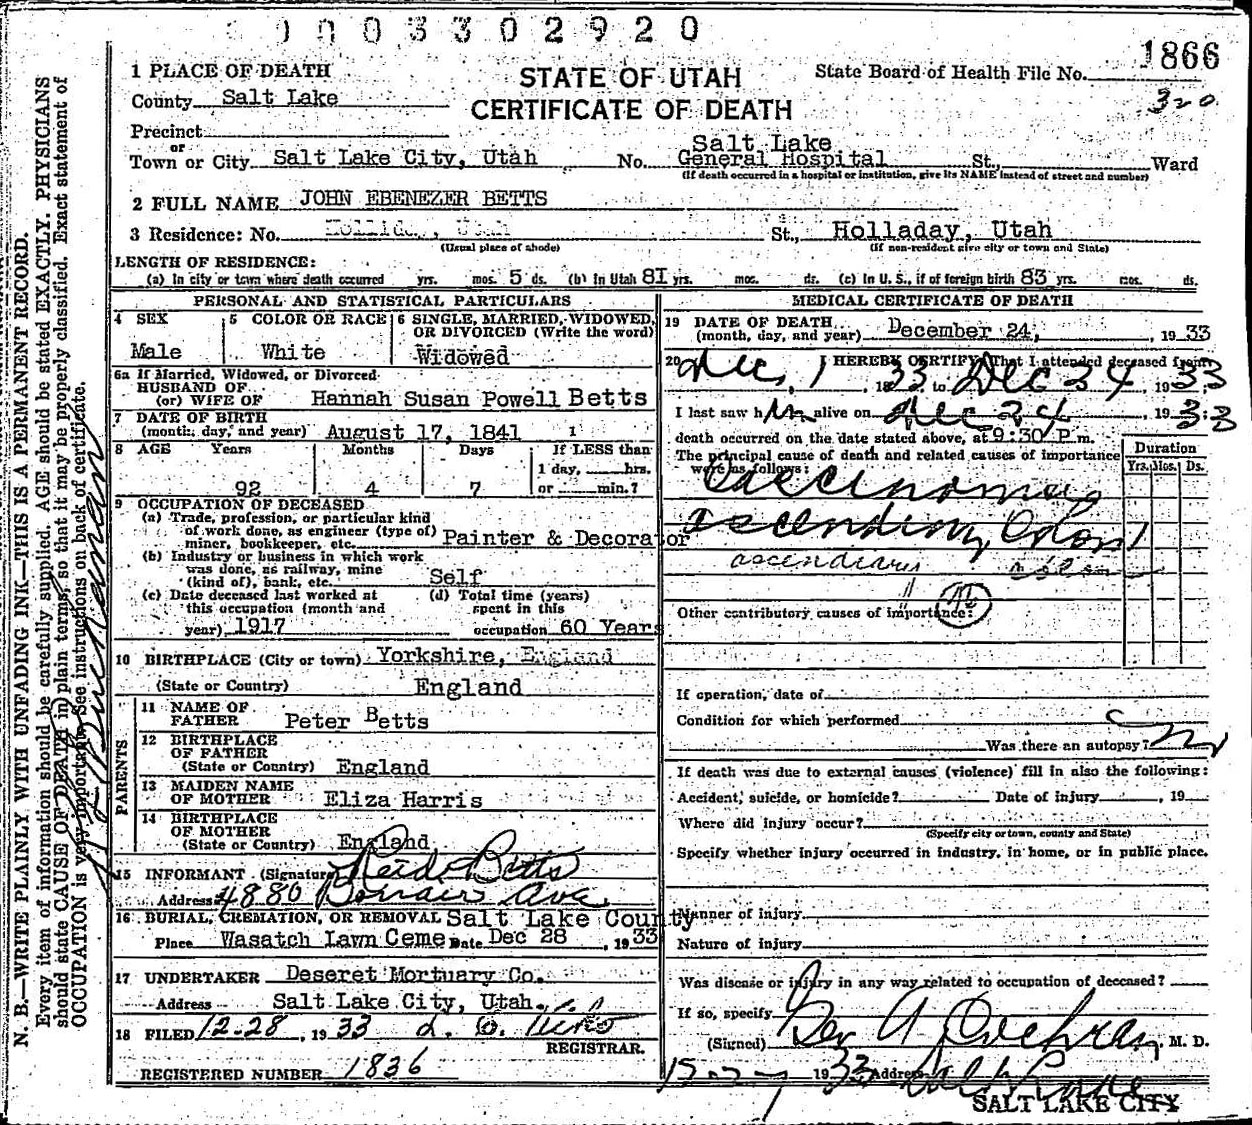 0003302920
1866
1 PLACE OF DEATH
STATE OF UTAH
State Board of Health File No.
County Salt Lake
CERTIFICATE OF DEATH
320
Precinct
or
Town or City Salt Lake City, Utah No. Salt Lake General Hospital St., Ward
(If death occurred in a hospital or institution, give its NAME instead of street and number)
2 FULL NAME JOHN EBENEZER BETTS
3 Residence: No. Holliday, Utah St., Holladay, Utah
(Usual place of abode) (If non-resident give city or town and State)
LENGTH OF RESIDENCE:
(a) In city or town where death occurred yrs. mos. 5 ds. (b) In Utah 81 yrs. mos. ds. (c) In U. S., if of foreign birth 83 yrs. mos. ds.
PERSONAL AND STATISTICAL PARTICULARS
4 SEX
Male
5 COLOR OR RACE
White
6 SINGLE, MARRIED, WIDOWED,
OR DIVORCED (Write the word)
Widowed
6a If Married, Widowed, or Divorced
HUSBAND OF
(or) WIFE OF Hannah Susan Powell Betts
7 DATE OF BIRTH
(month, day, and year) August 17, 1841
8 AGE Years Months Days If LESS than
1 day, hrs.
92 4 7 or min.?
9 OCCUPATION OF DECEASED
(a) Trade, profession, or particular kind
of work done, as engineer (type of)
miner, bookkeeper, etc. Painter & Decorator
(b) Industry or business in which work
was done, as railway, mine
(kind of), bank, etc. Self
(c) Date deceased last worked at
this occupation (month and
year) 1917
(d) Total time (years)
spent in this
occupation 60 Years
10 BIRTHPLACE (City or town) Yorkshire, England
(State or Country) England
PARENTS
11 NAME OF
FATHER Peter Betts
12 BIRTHPLACE
OF FATHER
(State or Country) England
13 MAIDEN NAME
OF MOTHER Eliza Harris
14 BIRTHPLACE
OF MOTHER
(State or Country) England
15 INFORMANT (Signature) Betts
Address 4880 Bonair Ave
16 BURIAL, CREMATION, OR REMOVAL Salt Lake County
Place Wasatch Lawn Ceme Date Dec 28, 1933
17 UNDERTAKER Deseret Mortuary Co.
Address Salt Lake City, Utah.
18 FILED 12-28, 1933
REGISTRAR.
REGISTERED NUMBER 1836
MEDICAL CERTIFICATE OF DEATH
19 DATE OF DEATH
(month, day, and year) December 24, 1933
20 I HEREBY CERTIFY, That I attended deceased from
Dec, 1, 1933 to Dec 24, 1933
I last saw him alive on Dec 24, 1933
death occurred on the date stated above, at 9:30 P.m.
The principal cause of death and related causes of importance
were as follows:
Duration
Yrs. Mos. Ds.
Carcinoma
ascending Colon
Other contributory causes of importance:
If operation, date of
Condition for which performed
Was there an autopsy? no
If death was due to external causes (violence) fill in also the following:
Accident, suicide, or homicide? Date of injury, 19
Where did injury occur?
(Specify city or town, county and State)
Specify whether injury occurred in industry, in home, or in public place.
Manner of injury
Nature of injury
Was disease or injury in any way related to occupation of deceased?
If so, specify
(Signed) Geo A Cochran, M. D.
1933 Address Salt Lake
SALT LAKE CITY
N. B.—WRITE PLAINLY, WITH UNFADING INK—THIS IS A PERMANENT RECORD.
Every item of information should be carefully supplied. AGE should be stated EXACTLY. PHYSICIANS
should state CAUSE OF DEATH in plain terms, so that it may be properly classified. Exact statement of
OCCUPATION is very important. See instructions on back of certificate.